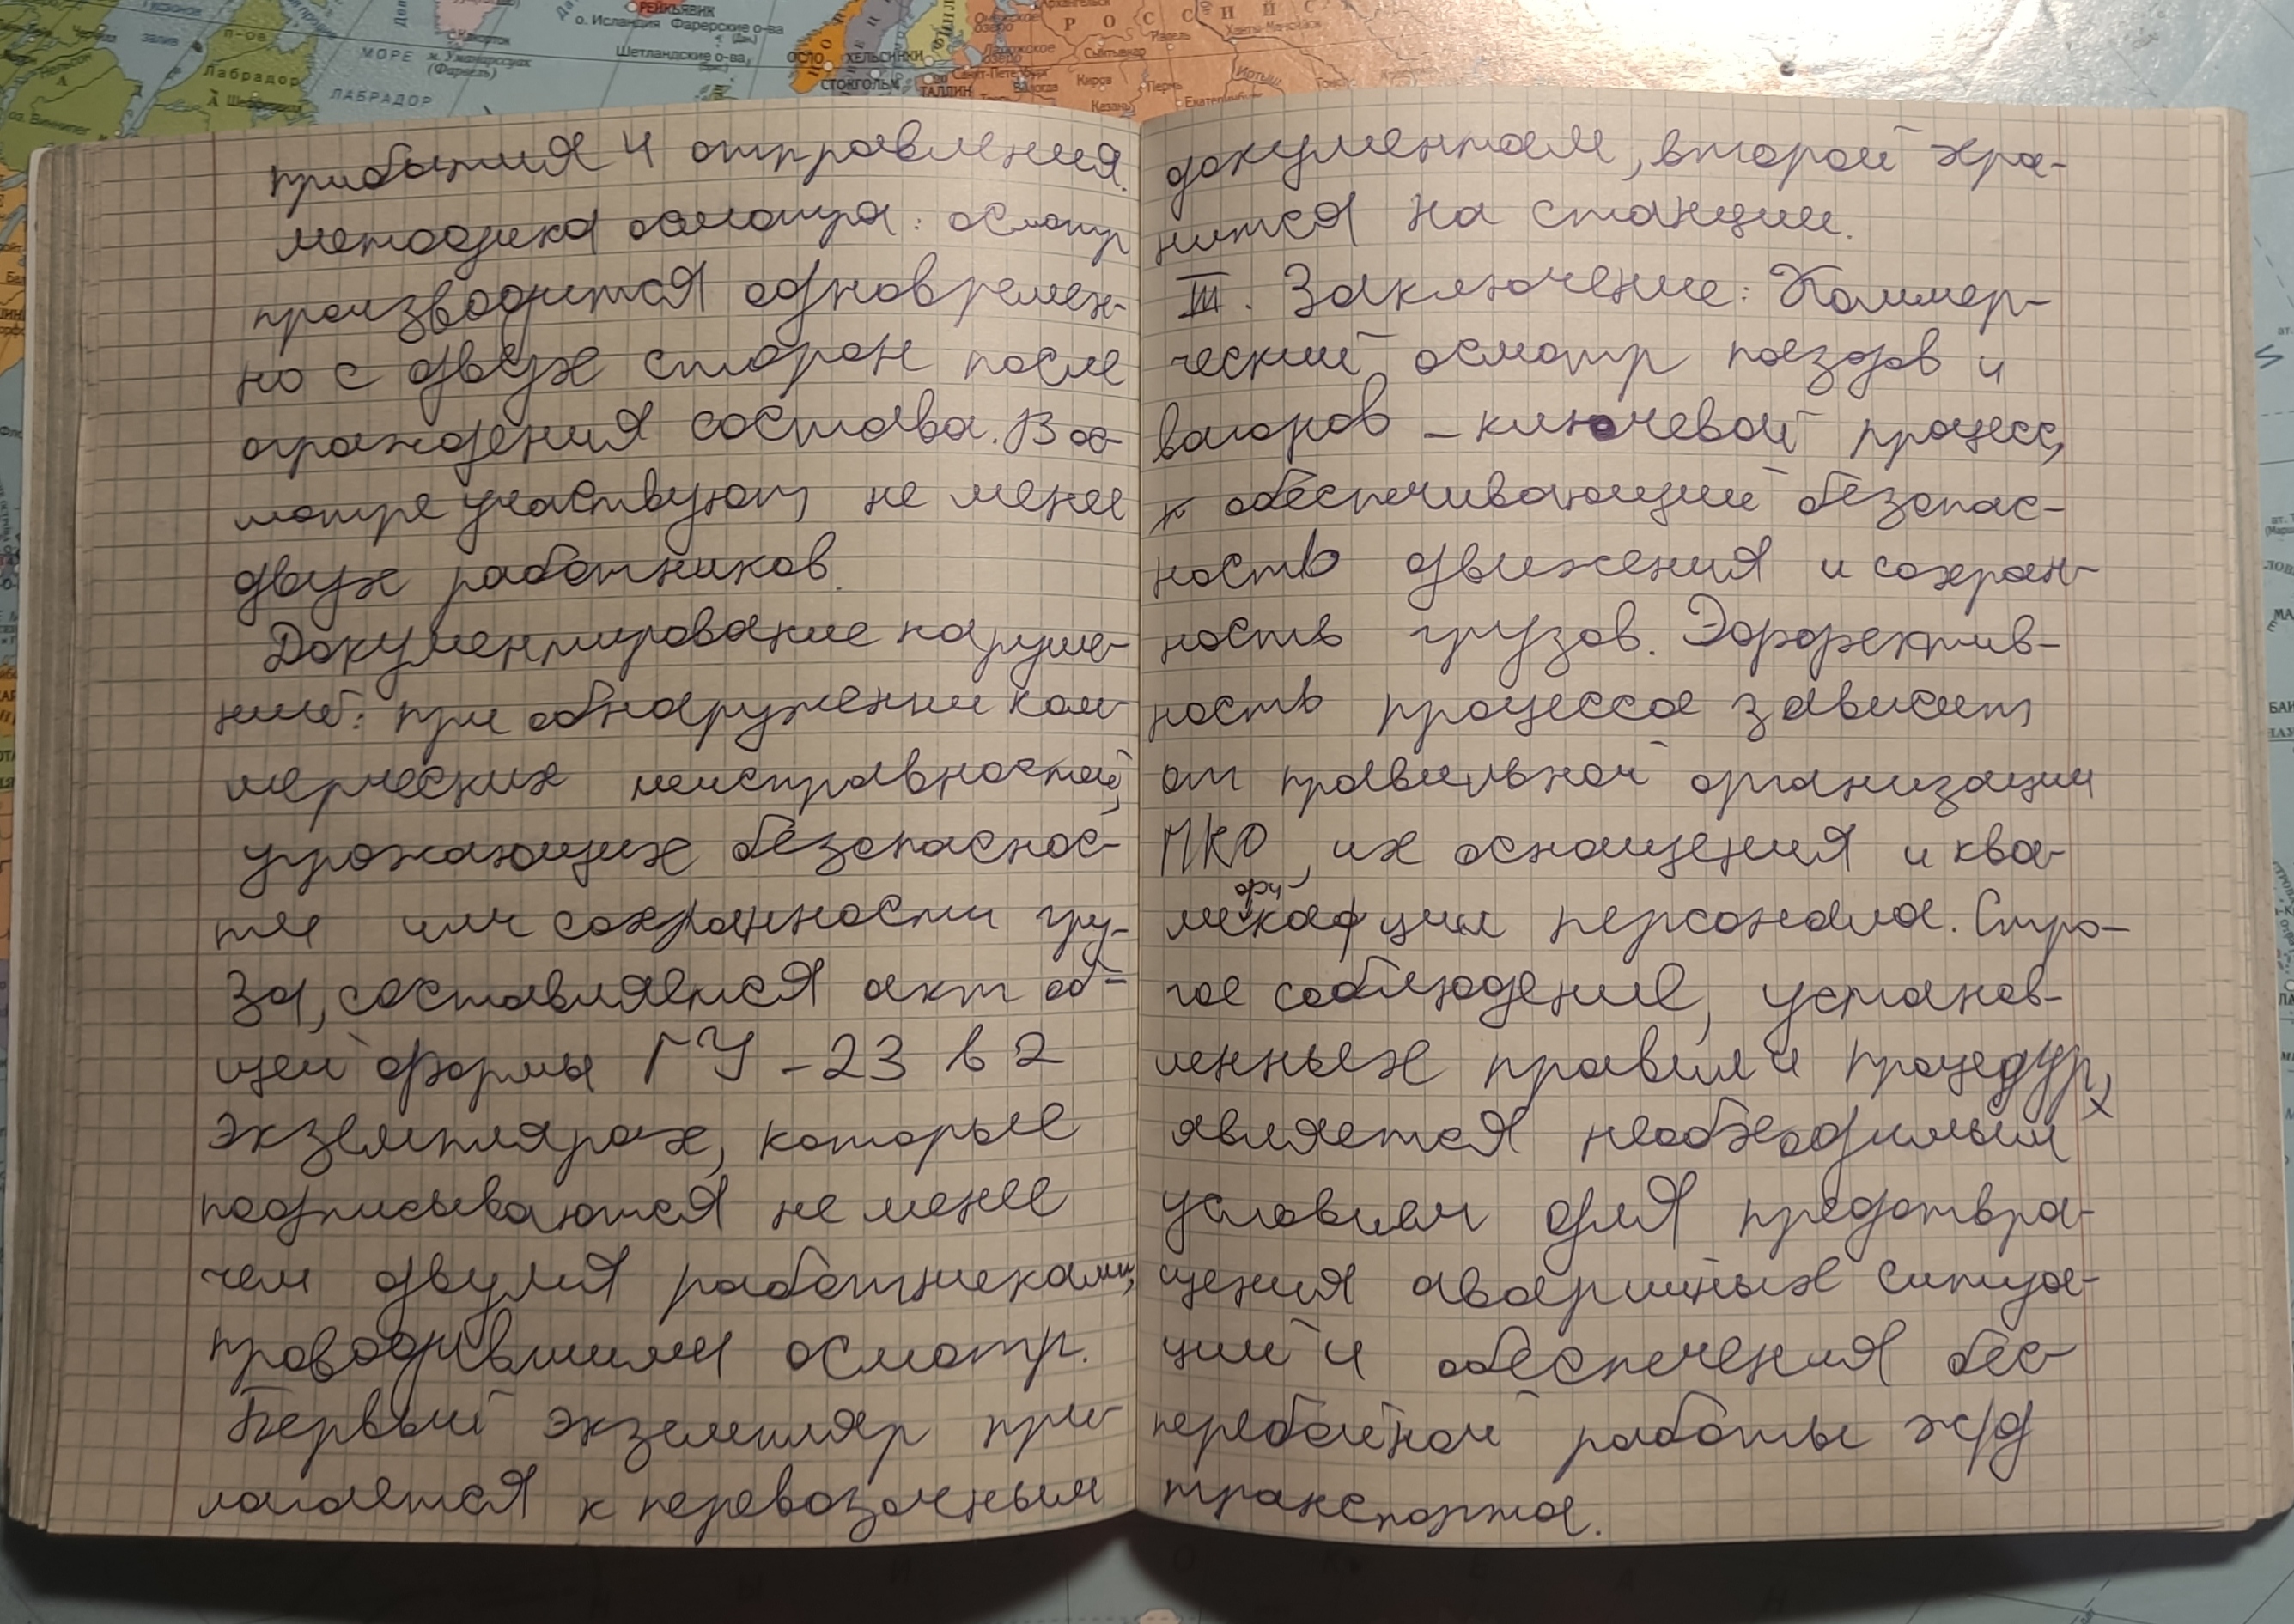 РЕЙКЬЯВИК
о. Исландия Фарерские о-ва
Шетландские о-ва
залив
п-ов
Лабрадор
МОРЕ
ЛАБРАДОР
оз. Виннипег
ОСЛО
ХЕЛЬСИНКИ
СТОКГОЛЬМ
ТАЛЛИН
Санкт-Петербург
Ладожское
озеро
Вологда
Киров
Пермь
Казань
Екатеринбург
Сыктывкар
Ханты-Мансийск
Иртыш
РОССИЙС
прибытия и отправления.
методика осмотра: осмотр
производится одновремен-
но с двух сторон после
ограждения состава. В ос-
мотре участвуют не менее
двух работников.
Документирование наруше-
ний: при обнаружении ком-
мерческих неисправностей,
угрожающих безопаснос-
ти или сохранности гру-
за, составляется акт об-
щей формы ГУ-23 в 2
экземплярах, которые
подписываются не менее
чем двумя работниками,
проводившими осмотр.
Первый экземпляр при-
лагается к перевозочным
документам, второй хра-
нится на станции.
III. Заключение: Коммер-
ческий осмотр поездов и
вагонов – ключевой процесс,
обеспечивающий безопас-
ность движения и сохран-
ность грузов. Эффектив-
ность процесса зависит
от правильной организации
ПКО, их оснащения и ква-
фи
персонала. Стро-
гое соблюдение, установ-
ленных правил и процедур,
является необходимым
условием для предотвра-
щения аварийных ситуа-
ций и обеспечения бес-
перебойной работы ж/д
транспорта.